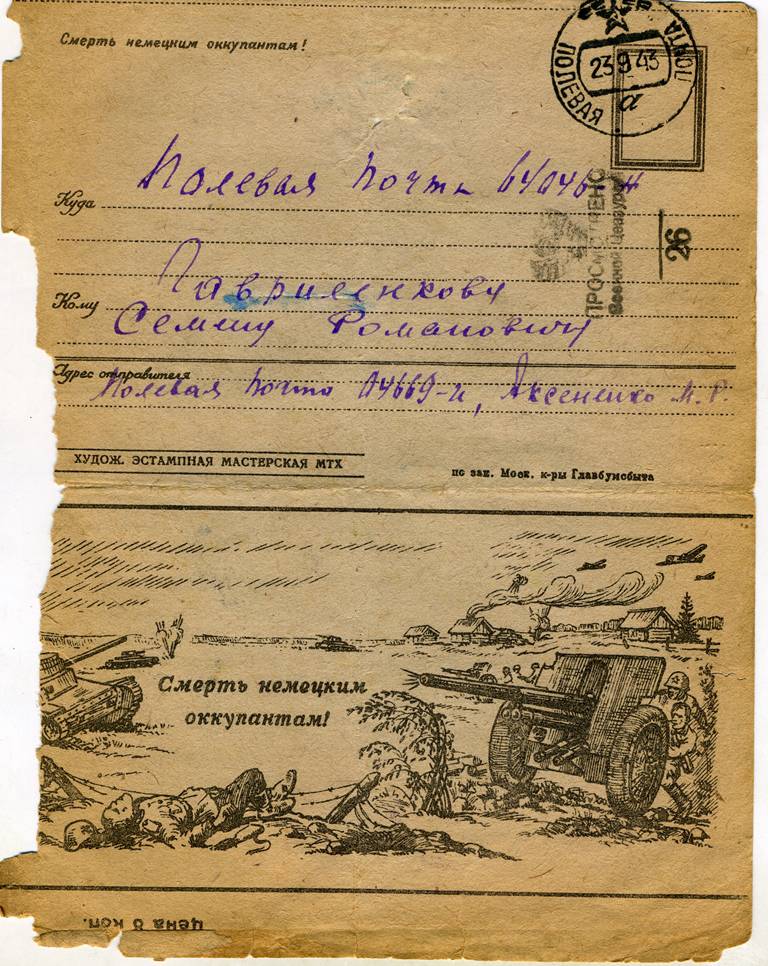 Смерть немецким оккупантам!
ПОЛЕВАЯ ПОЧТА
23 9 43
а
Куда Полевая почта 64046 н
ПРОСМОТРЕНО
Военной Цензурой
26
Кому Гавриленкову
Семену Романовичу
Адрес отправителя
Полевая почта 04669-и, Аксененко М. Р.
ХУДОЖ. ЭСТАМПНАЯ МАСТЕРСКАЯ МТХ
по зак. Моск. к-ры Главбумсбыта
Смерть немецким
оккупантам!
цена 8 коп.